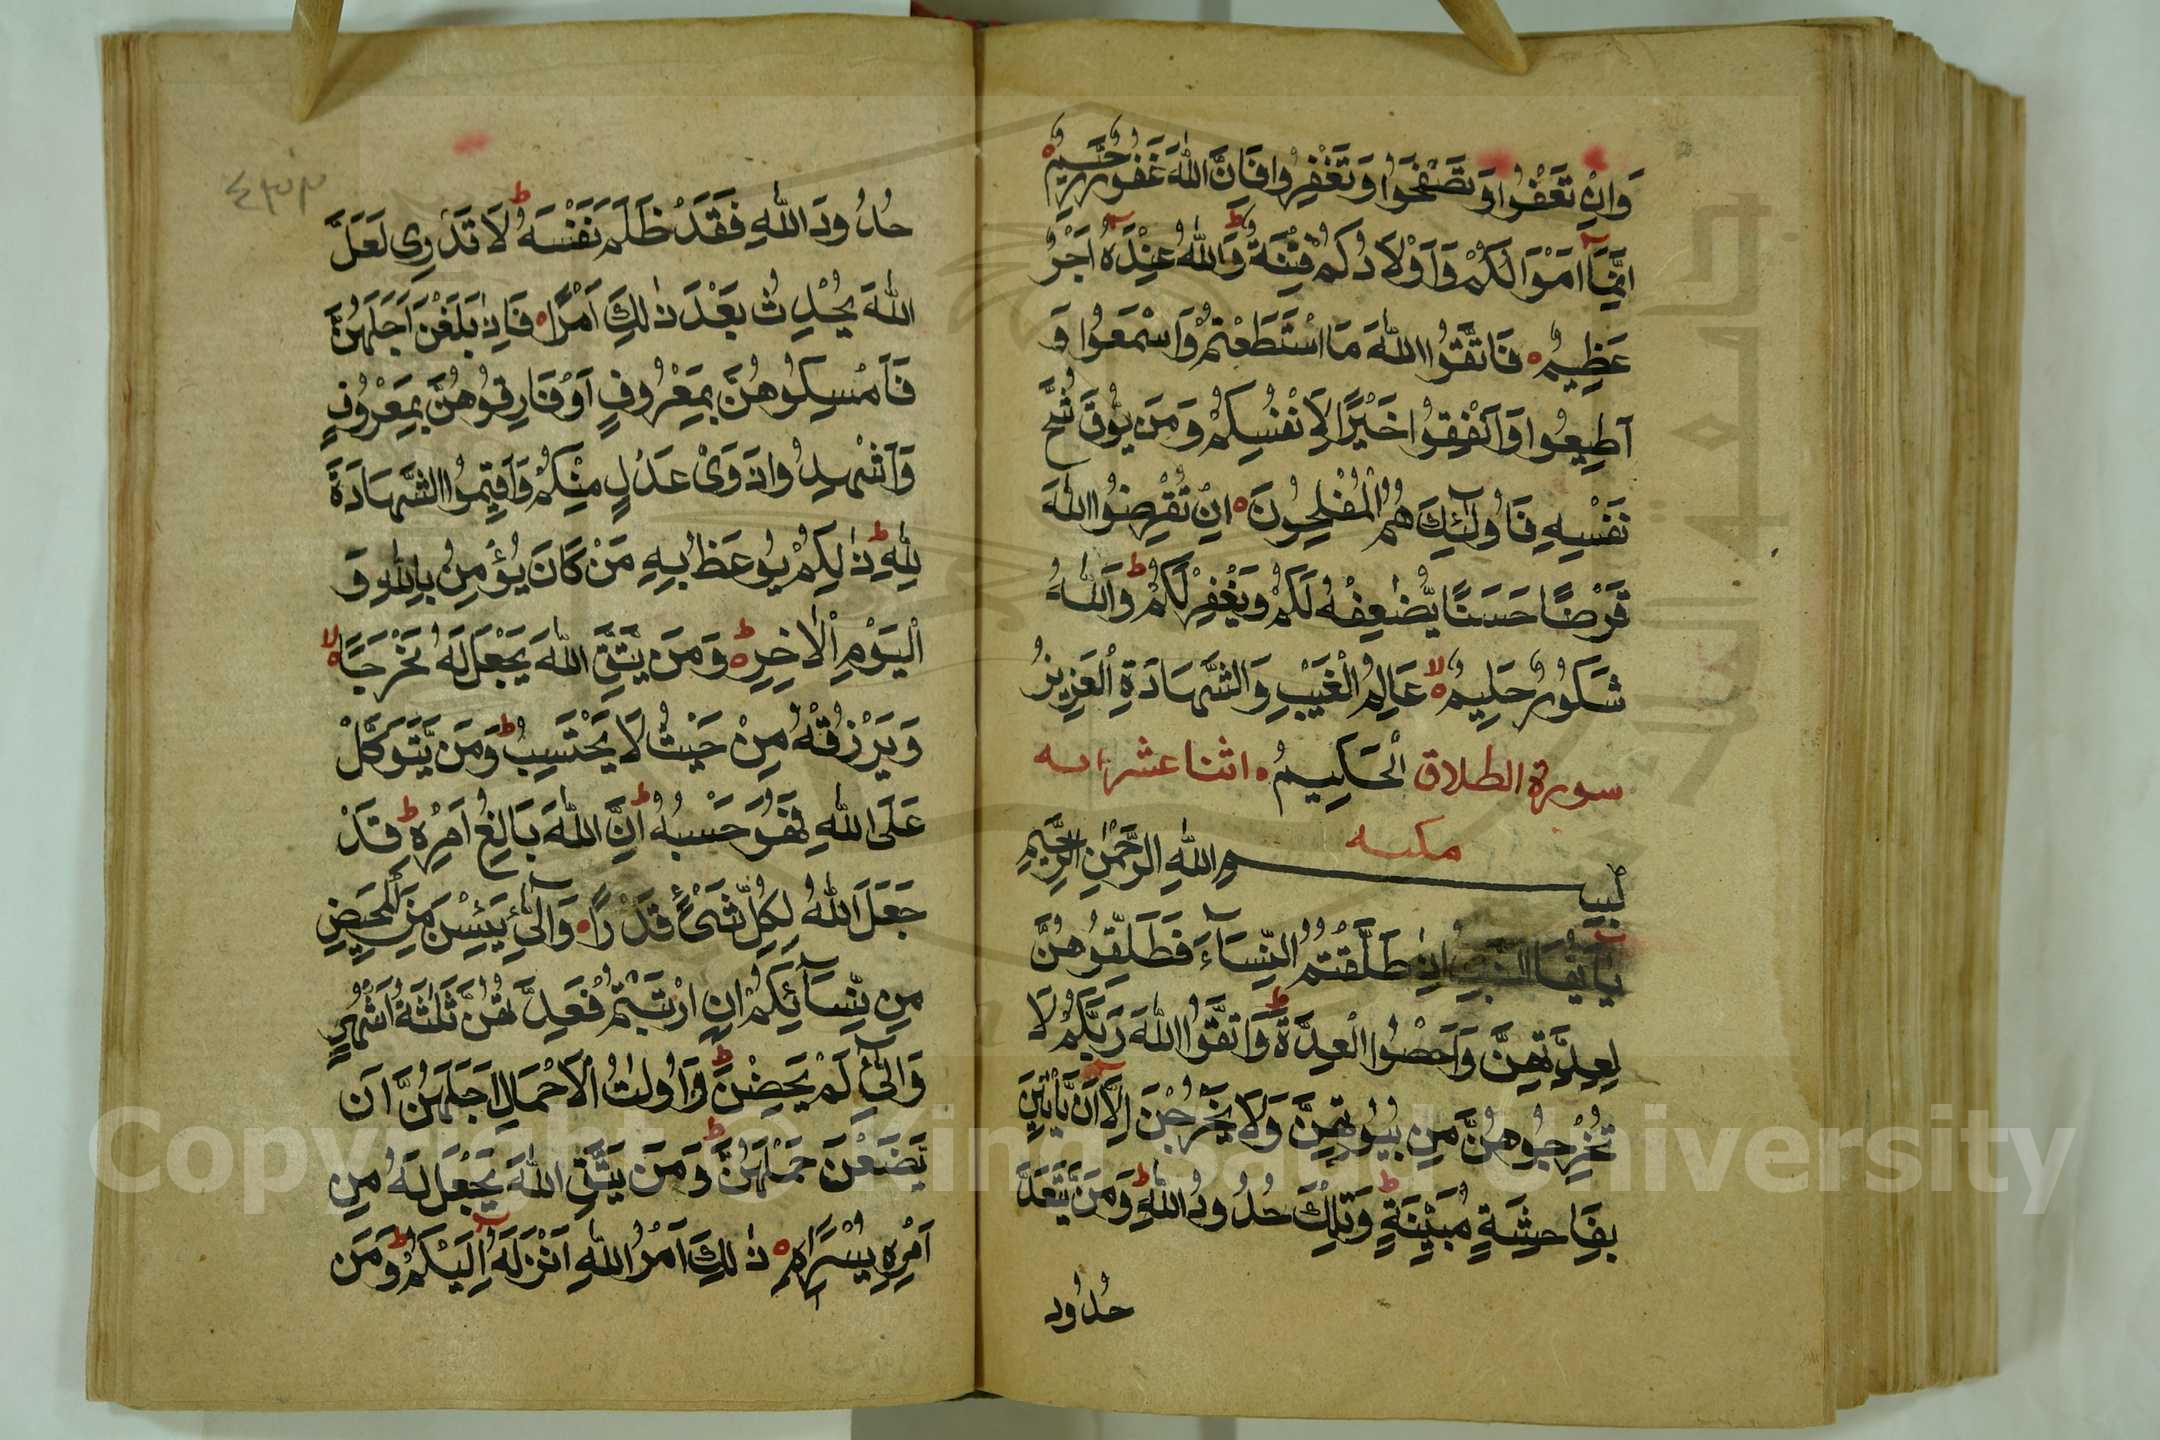 وَاِنْ تَعْفُوْا وَتَصْفَحُوْا وَتَغْفِرُوْا فَاِنَّ اللّٰهَ غَفُوْرٌ رَّحِيْمٌ
اِنَّمَآ اَمْوَالُكُمْ وَاَوْلَادُكُمْ فِتْنَةٌ ط وَاللّٰهُ عِنْدَهٗٓ اَجْرٌ
عَظِيْمٌ ه فَاتَّقُوا اللّٰهَ مَا اسْتَطَعْتُمْ وَاسْمَعُوْا وَ
اَطِيْعُوْا وَاَنْفِقُوْا خَيْرًا لِاَنْفُسِكُمْ وَمَنْ يُوْقَ شُحَّ
نَفْسِهٖ فَاُولٰٓئِكَ هُمُ الْمُفْلِحُوْنَ ه اِنْ تُقْرِضُوا اللّٰهَ
قَرْضًا حَسَنًا يُّضٰعِفْهُ لَكُمْ وَيَغْفِرْ لَكُمْ ط وَاللّٰهُ
شَكُوْرٌ حَلِيْمٌ ه لا عَالِمُ الْغَيْبِ وَالشَّهَادَةِ الْعَزِيْزُ
سورة الطلاق الْحَكِيْمُ ه اثنا عشر ايه
مكيه
بِسْمِ اللّٰهِ الرَّحْمٰنِ الرَّحِيْمِ
يٰٓاَيُّهَا النَّبِيُّ اِذَا طَلَّقْتُمُ النِّسَآءَ فَطَلِّقُوْهُنَّ
لِعِدَّتِهِنَّ وَاَحْصُوا الْعِدَّةَ ط وَاتَّقُوا اللّٰهَ رَبَّكُمْ لَا
تُخْرِجُوْهُنَّ مِنْ بُيُوْتِهِنَّ وَلَا يَخْرُجْنَ اِلَّآ اَنْ يَّاْتِيْنَ
بِفَاحِشَةٍ مُبَيِّنَةٍ ط وَتِلْكَ حُدُوْدُ اللّٰهِ ط وَمَنْ يَّتَعَدَّ
حُدُوْد
٤٣٣
حُدُوْدَ اللّٰهِ فَقَدْ ظَلَمَ نَفْسَهٗ ط لَا تَدْرِيْ لَعَلَّ
اللّٰهَ يُحْدِثُ بَعْدَ ذٰلِكَ اَمْرًا ه فَاِذَا بَلَغْنَ اَجَلَهُنَّ
فَاَمْسِكُوْهُنَّ بِمَعْرُوْفٍ اَوْ فَارِقُوْهُنَّ بِمَعْرُوْفٍ
وَاَشْهِدُوْا ذَوَيْ عَدْلٍ مِنْكُمْ وَاَقِيْمُوا الشَّهَادَةَ
لِلّٰهِ ط ذٰلِكُمْ يُوْعَظُ بِهٖ مَنْ كَانَ يُؤْمِنُ بِاللّٰهِ وَ
الْيَوْمِ الْاٰخِرِ ه ط وَمَنْ يَتَّقِ اللّٰهَ يَجْعَلْ لَهٗ مَخْرَجًا ه لا
وَيَرْزُقْهُ مِنْ حَيْثُ لَا يَحْتَسِبُ ط وَمَنْ يَّتَوَكَّلْ
عَلَى اللّٰهِ فَهُوَ حَسْبُهٗ ط اِنَّ اللّٰهَ بَالِغُ اَمْرِهٖ ط قَدْ
جَعَلَ اللّٰهُ لِكُلِّ شَيْءٍ قَدْرًا ه وَالّٰٓئِيْ يَئِسْنَ مِنَ الْمَحِيْضِ
مِنْ نِّسَآئِكُمْ اِنِ ارْتَبْتُمْ فَعِدَّتُهُنَّ ثَلٰثَةُ اَشْهُرٍ
وَالّٰٓئِيْ لَمْ يَحِضْنَ ط وَاُولَاتُ الْاَحْمَالِ اَجَلُهُنَّ اَنْ
يَّضَعْنَ حَمْلَهُنَّ ط وَمَنْ يَتَّقِ اللّٰهَ يَجْعَلْ لَهٗ مِنْ
اَمْرِهٖ يُسْرًا ه ذٰلِكَ اَمْرُ اللّٰهِ اَنْزَلَهٗٓ اِلَيْكُمْ ط وَمَنْ
Copyright © King Saud University